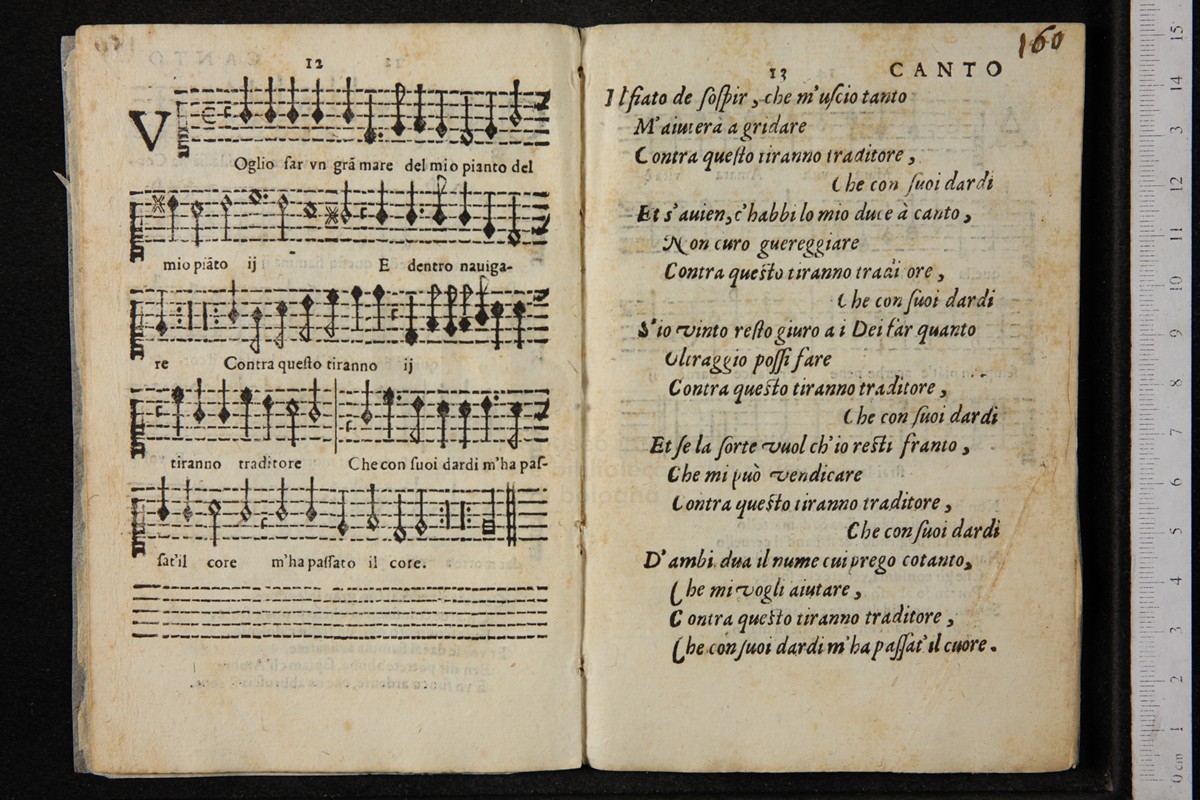 12
VOglio far vn grã mare del mio pianto del
mio piãto ij E dentro nauiga-
re Contra questo tiranno ij
tiranno traditore Che con suoi dardi m'ha pas-
sat'il core m'ha passato il core.
160
13 CANTO
Il fiato de sospir, che m'uscio tanto
M'aiuterà a gridare
Contra questo tiranno traditore,
Che con suoi dardi
Et s'auien, c'habbi lo mio duce à canto,
Non curo guereggiare
Contra questo tiranno tradi ore,
Che con suoi dardi
S'io vinto resto giuro a i Dei far quanto
Oltraggio possi fare
Contra questo tiranno traditore,
Che con suoi dardi
Et se la sorte vuol ch'io resti franto,
Che mi può vendicare
Contra questo tiranno traditore,
Che con suoi dardi
D'ambi dua il nume cui prego cotanto,
Che mi vogli aiutare,
Contra questo tiranno traditore,
Che con suoi dardi m'ha passat'il cuore.